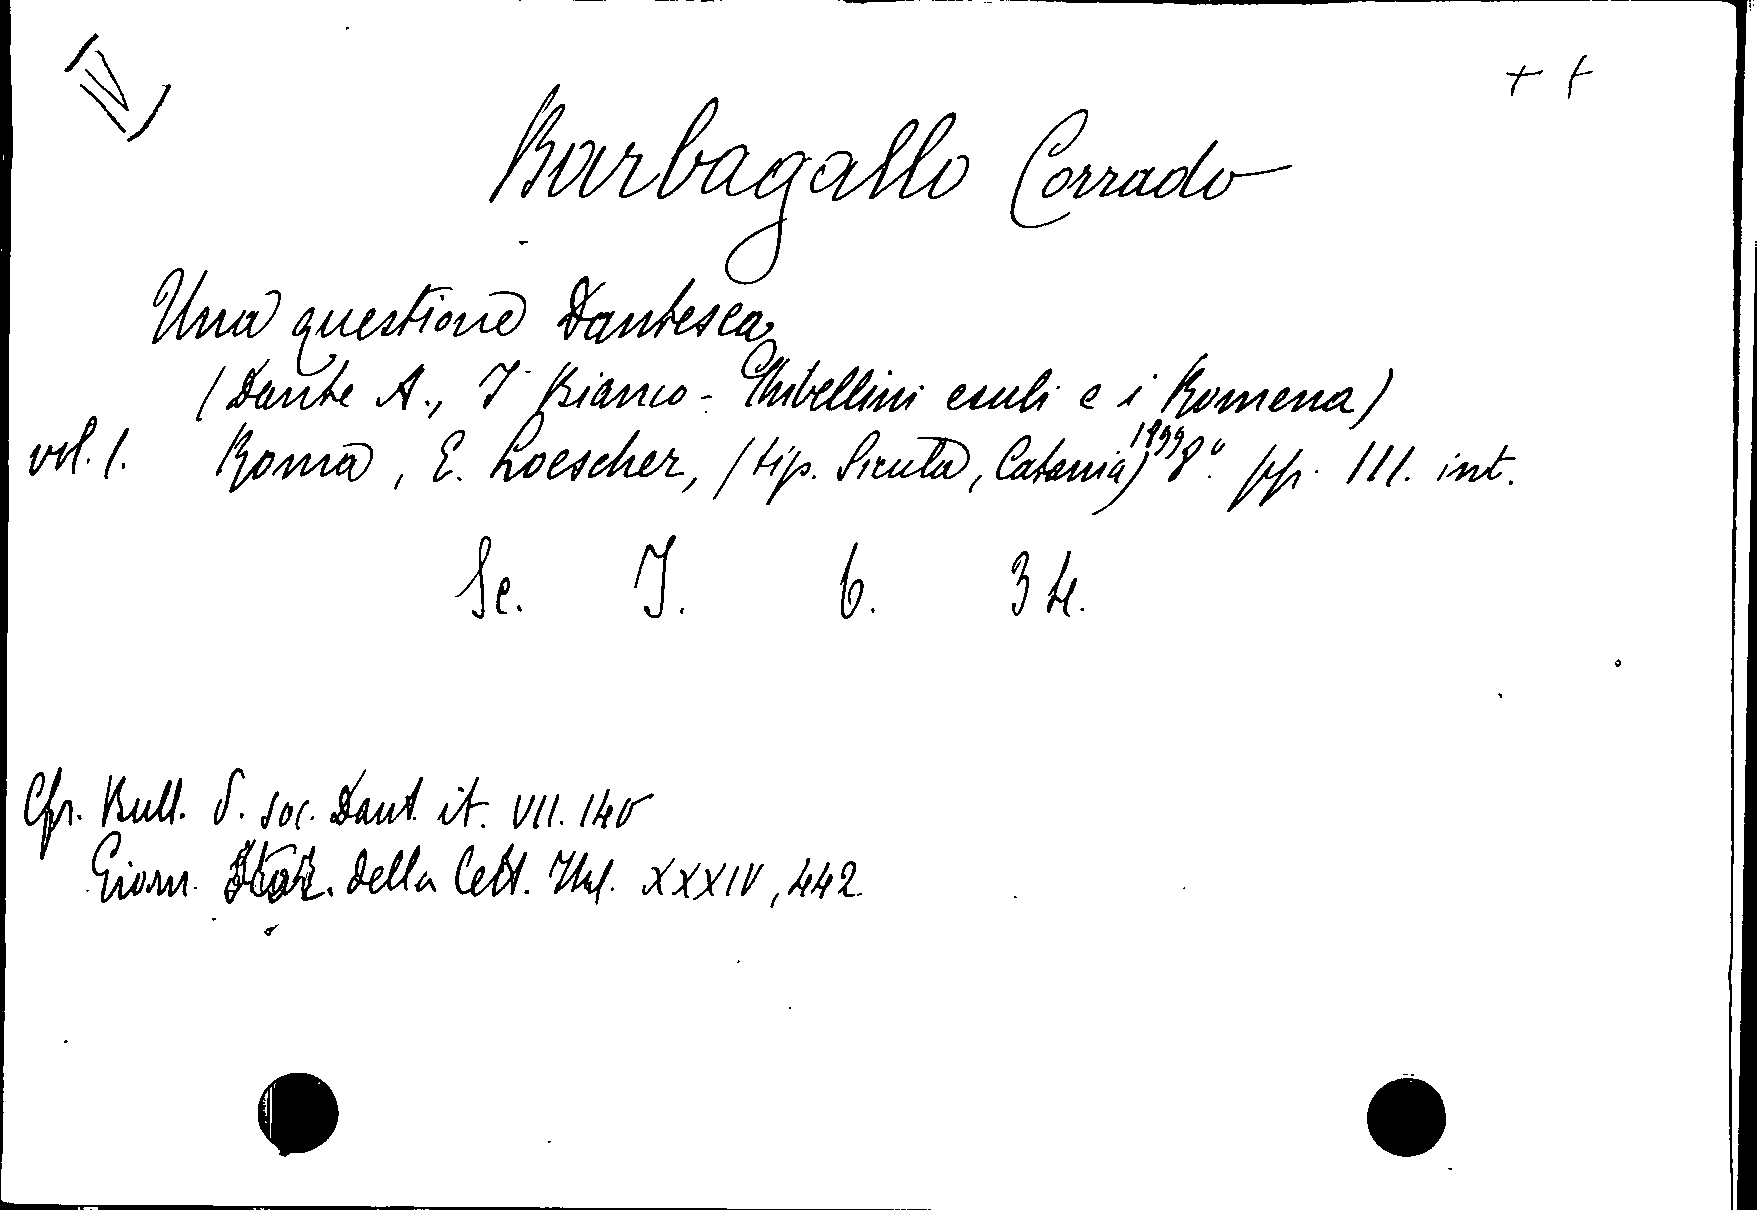 IV
+ +
Barbagallo Corrado
Una questione Dantesca
(Dante A., I Bianco-Ghibellini esuli e i Romena)
vol. 1. Roma, E. Loescher, (tip. Sicula, Catania) 1899 8.° pp. 111. int.
Sc. I. 6. 34.
Cfr. Bull. d. soc. Dant. it. VII. 140
Giorn. Stor. della Lett. Ital. XXXIV, 442